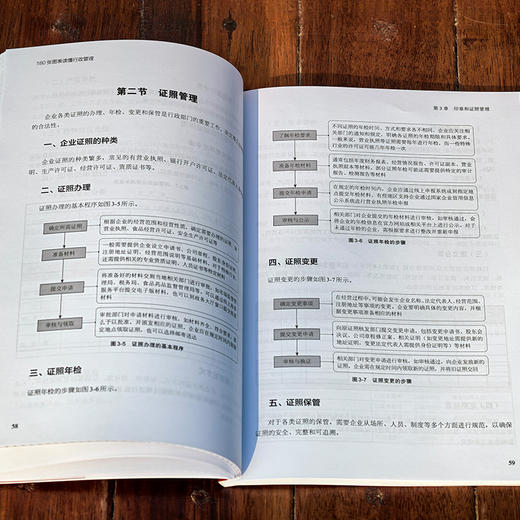 160张图表读懂行政管理
第二节 证照管理
企业各类证照的办理、年检、变更和保管是行政部门的重要工作，
的合法性。
一、企业证照的种类
企业证照的种类繁多，常见的有营业执照、银行开户许可证、法定代表人
明、生产许可证、经营许可证、资质证书等。
二、证照办理
证照办理的基本程序如图3-5所示。
确定所需证照
根据企业的经营范围和经营性质，确定需要办理的证照，
营业执照、食品经营许可证、安全生产许可证等
准备材料
一般需要提供企业设立申请书、公司章程、股东身份证明、
注册地址证明、经营范围说明等基础材料。
还需提供相关的专业资质证明、人员证书等
提交申请
将准备好的材料交到当地相关部门进行审核。
理局、税务局、食品药品监督管理局等。
服务平台提交电子版材料，也可以到政务大厅窗口
审核与领取
审批部门对申请材料进行审核，如材料齐全、符合要求，
予以批准，并颁发相应的证照。企业应在规定时间内
定地点领取证照，也可以选择邮寄送达
图3-5 证照办理的基本程序
三、证照年检
证照年检的步骤如图3-6所示。
58
第3章 印章和证照管理
了解年检要求
不同证照的年检时间、方式和要求各不相同，企业应关注相
关部门的通知和规定，明确各证照的年检期限和具体要求。
例如，营业执照一般需要每年进行年检，而一些特殊
行业的许可证可能几年年检一次
准备年检材料
通常包括年度财务报表、经营情况报告、许可证副本、营业
执照副本等材料。部分证照年检可能还需要提供特定的审计
报告、检测报告等材料
提交年检申请
在规定的年检时间内，企业应通过线上申报系统或到指定地
点提交年检材料。有些地区支持企业通过国家企业信用信息
公示系统进行营业执照年检申报
审核与公示
相关部门对企业提交的年检材料进行审核，如审核通过，会
将企业的年检信息在官方网站或相关平台上进行公示。对于
未通过年检的证照，需根据要求进行整改并重新申报
图3-6 证照年检的步骤
四、证照变更
证照变更的步骤如图3-7所示。
确定变更事项
在经营过程中，可能会发生企业名称、法定代表人、经营范围、
注册地址等事项的变更，企业要明确具体的变更内容，并根
据变更事项准备相应的材料
提交变更申请
向原证照核发部门提交变更申请，包括变更申请书、股东会
决议、公司章程修正案、相关证明（如变更地址需提供新的
地址证明、变更法定代表人需提供身份证明等）等材料
审核与换证
相关部门对变更申请进行审核，如审核通过，向企业发放新的证
照。企业需在规定时间内领取新的证照，并将旧证照交回
图3-7 证照变更的步骤
五、证照保管
对于各类证照的保管，需要企业从场所、人员、制度等多个方面进行规范，以确保
证照的安全、完整和可追溯。
59